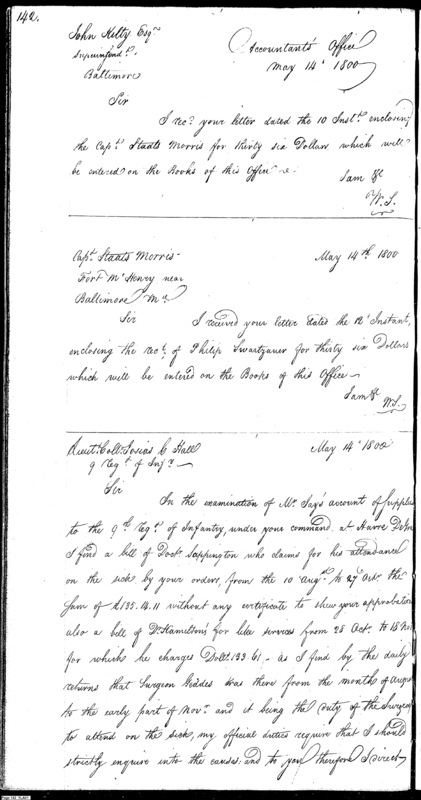 142.
John Kilty Esqr
Superintendt.
Baltimore
Accountants Office
May 14th 1800
Sir
I recd your letter dated the 10 Instt. enclosing
the Capt. Staats Morris for thirty six Dollars which will
be entered on the Books of this Office
I am &c
W.S.
Capt. Staats Morris
Fort Mc Henry near
Baltimore Md
May 14th. 1800
Sir
I received your letter dated the 12th Instant,
enclosing the rect. of Philip Swartzauer for thirty six Dollars
which will be entered on the Books of this Office
I am &c
W.S.
Lieut: Coll: Josias C Hall
9 Regt. of Infy.
May 14th 1800
Sir
In the examination of Mr. Jay's account of Supplies
to the 9th. Regt. of Infantry, under your command at Havre De
I find a bill of Doct. Sappington who claims for his attendance
on the sick by your orders, from the 10 Augt. to 27 Octr. the
Sum of £135.14.11 without any certificate to shew your approbation
also a bill of Dr. Hamilton's for like services from 28 Oct. to 18 Nov
for which he charges Dolls. 133.61 - as I find by the daily
returns that Surgeon Geddes was there from the month of August
to the early part of Novr. and it being the duty of the Surgeon
to attend on the sick, my official duties require that I should
strictly enquire into the causes: and to you therefore I direct